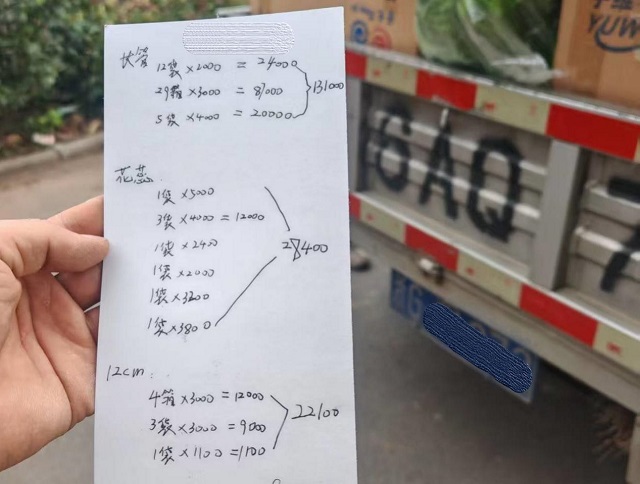 状管
12袋×2000 = 24000
29箱×3000 = 87000
5袋×4000 = 20000
131000
花蕊
1袋×5000
3袋×4000 = 12000
1袋×2400
1袋×2000
1袋×3200
1袋×3800
28400
12cm
4箱×3000 = 12000
3袋×3000 = 9000
1袋×1100 = 1100
22100
6AQ
YUW